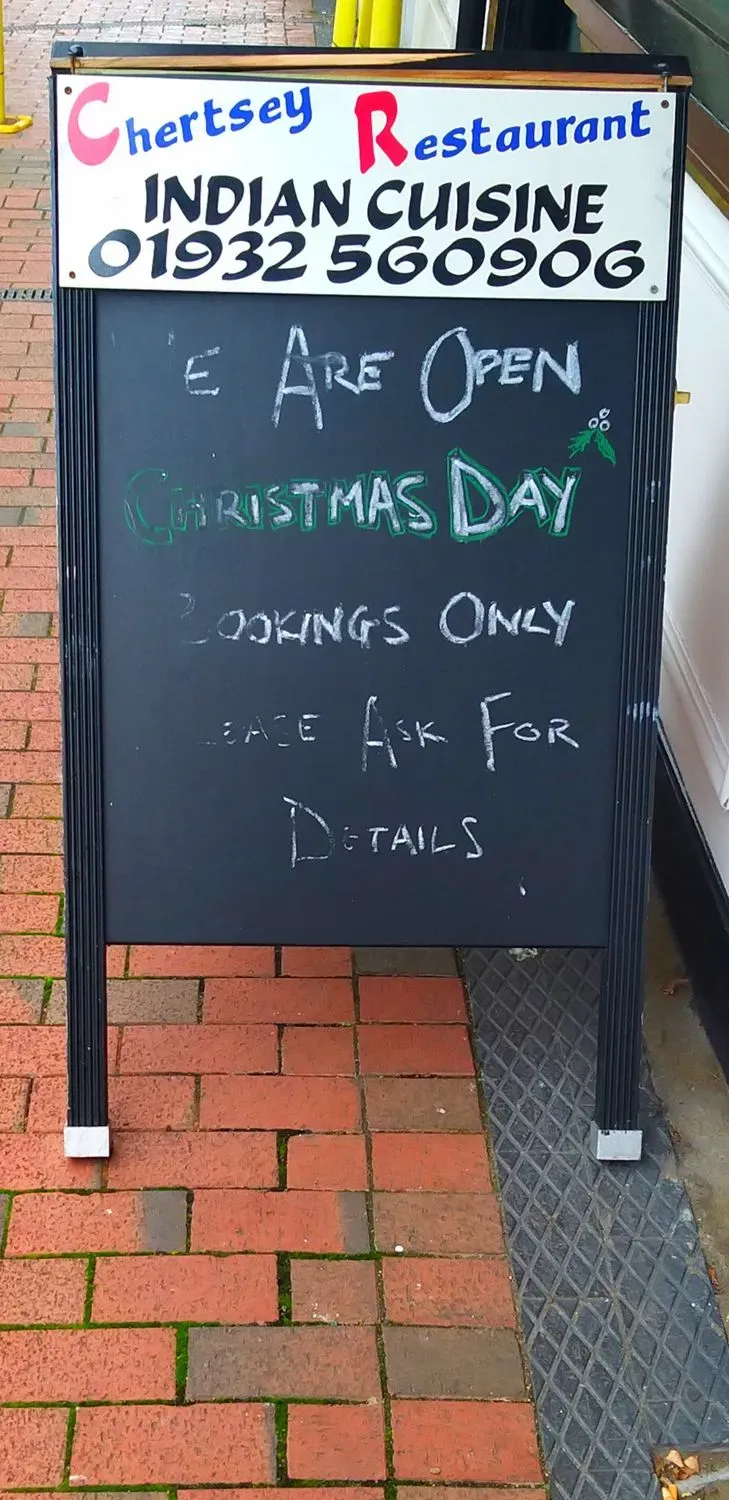 Chertsey Restaurant
INDIAN CUISINE
01932 560906
E ARE OPEN
CHRISTMAS DAY
BOOKINGS ONLY
EASE ASK FOR
DETAILS